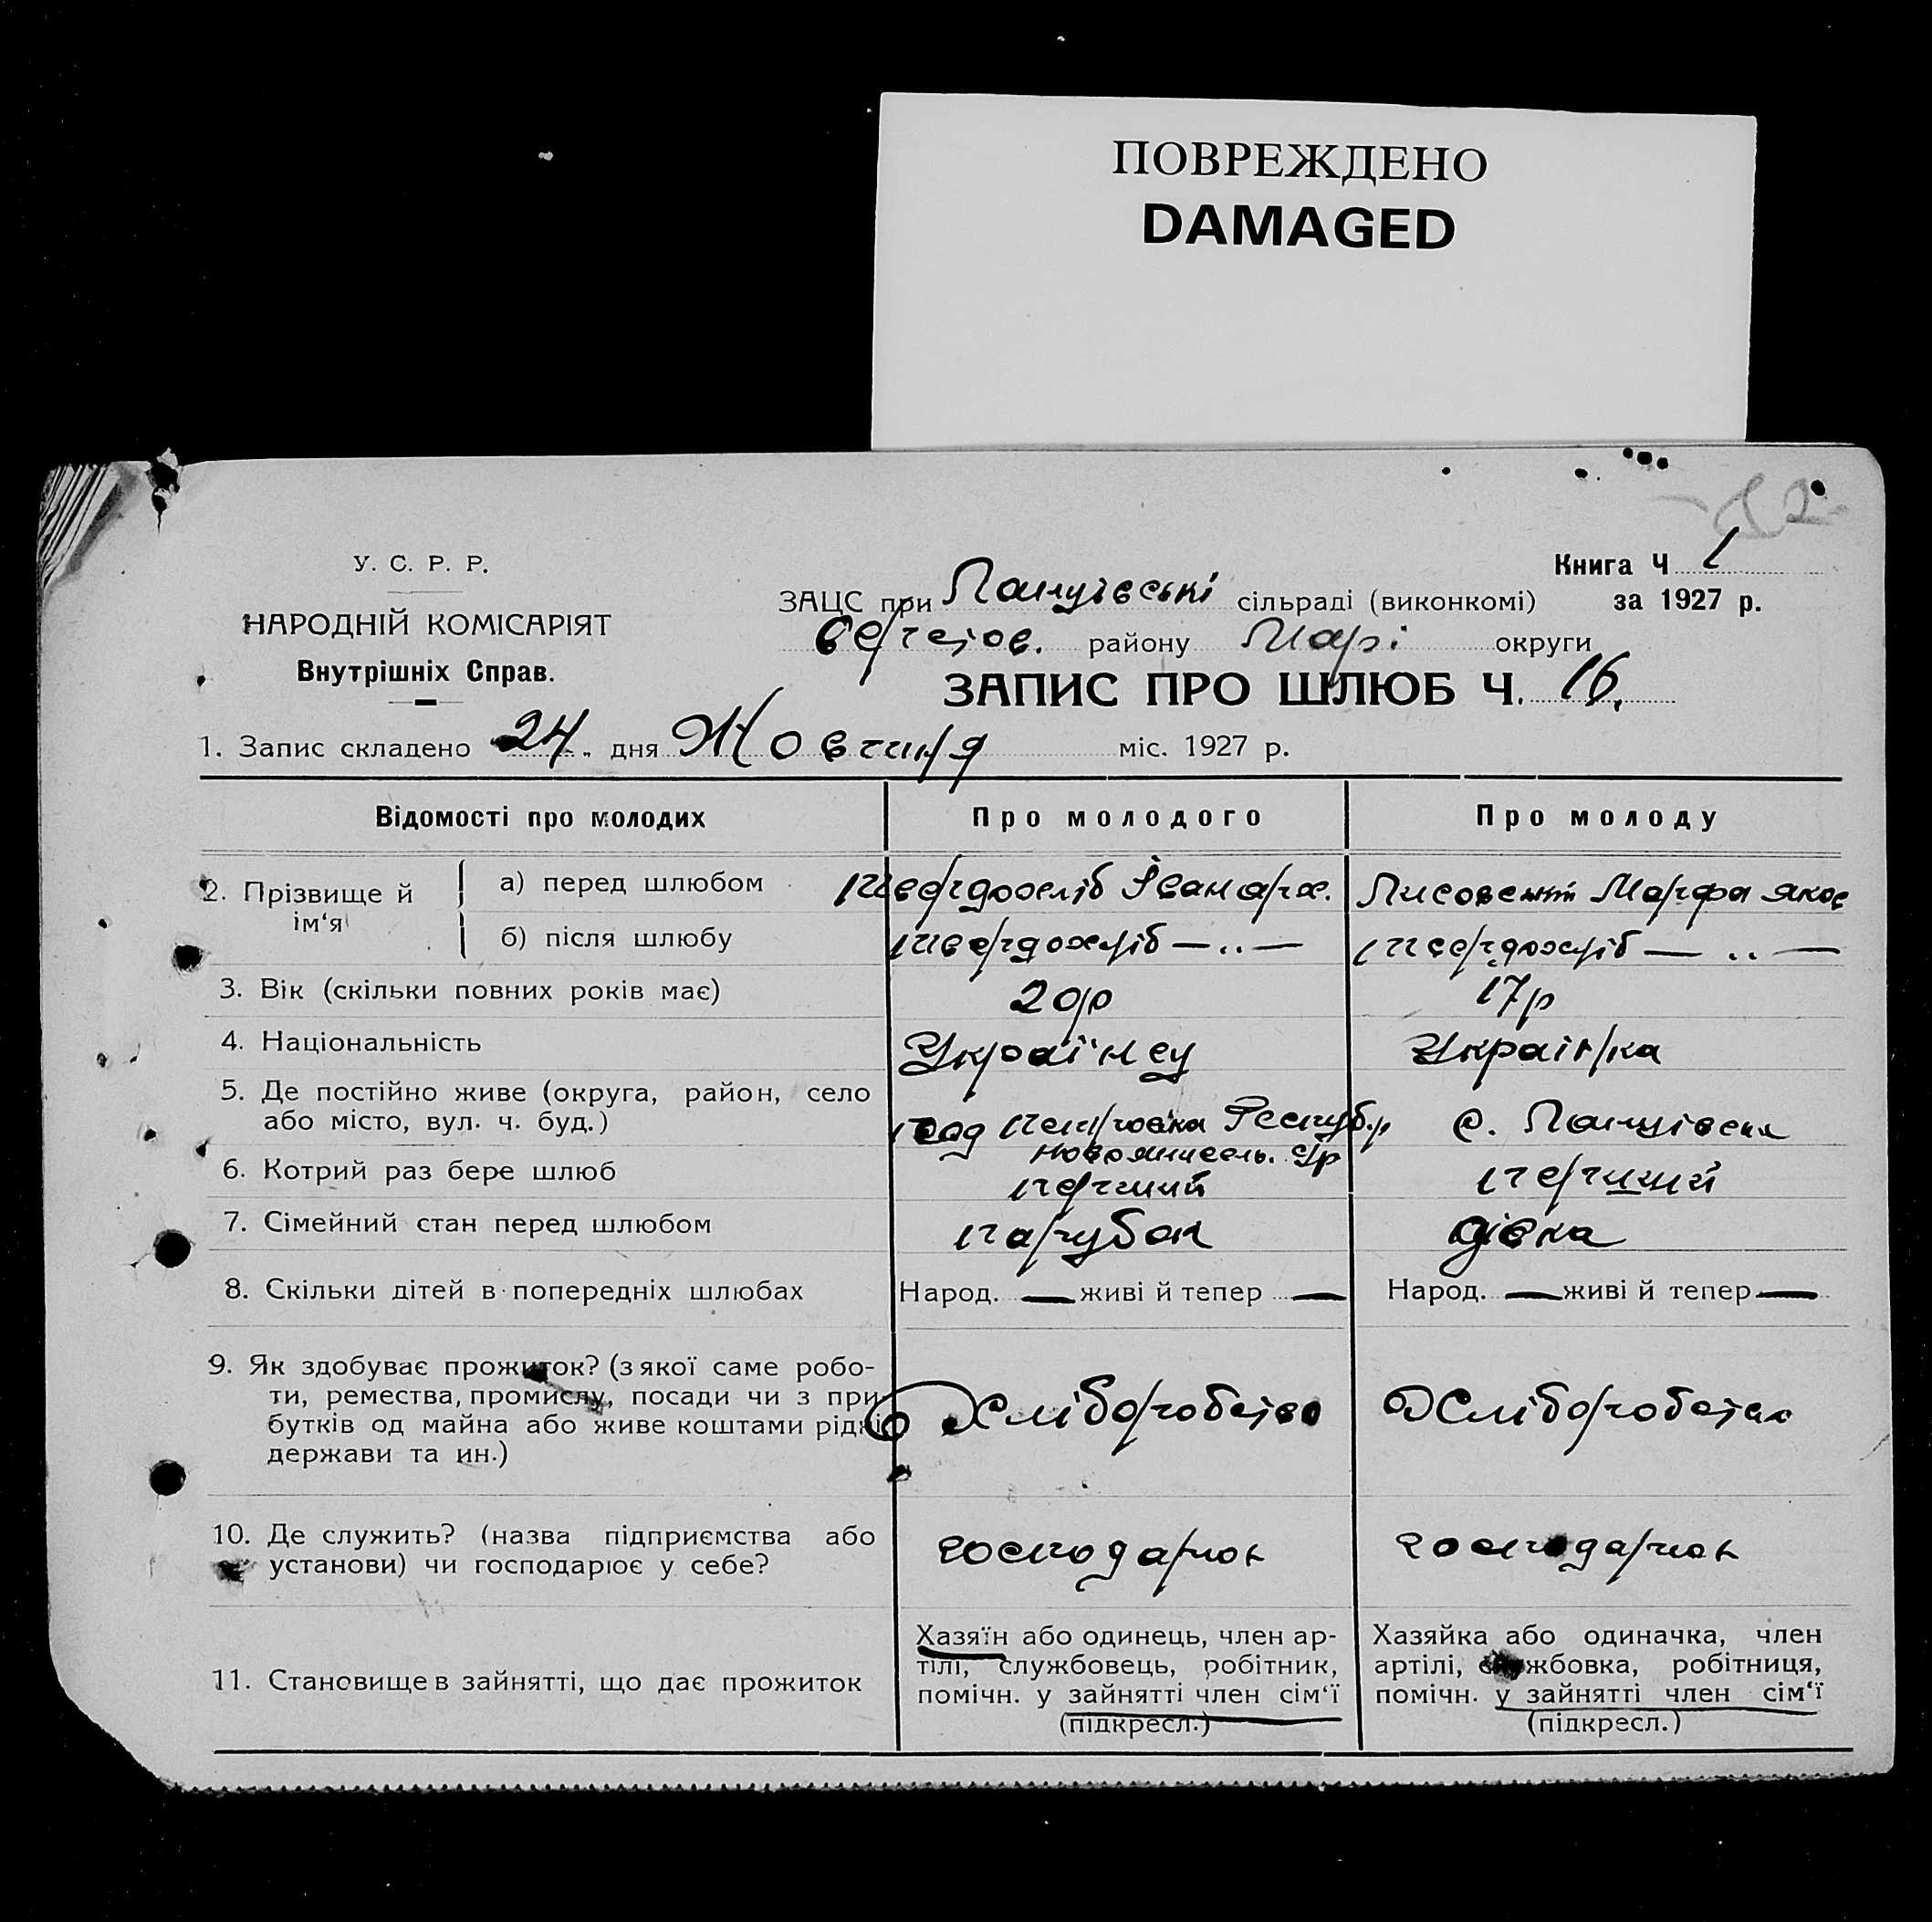 ПОВРЕЖДЕНО
DAMAGED
У. С. Р. Р.
НАРОДНІЙ КОМІСАРІЯТ
Внутрішніх Справ.
Книга Ч 1
за 1927 р.
ЗАЦС при сільраді (виконкомі)
району Марі округи
ЗАПИС ПРО ШЛЮБ Ч. 16.
1. Запис складено 24 дня Жовтня міс. 1927 р.
Відомості про молодих Про молодого Про молоду
2. Прізвище й ім‘я
а) перед шлюбом Твердохліб Іван Марфа
б) після шлюбу Твердохліб — „ — Твердохліб — „ —
3. Вік (скільки повних років має) 20р 17р
4. Національність Українец Украінка
5. Де постійно живе (округа, район, село
або місто, вул. ч. буд.) с.
6. Котрий раз бере шлюб перший перший
7. Сімейний стан перед шлюбом парубок дівка
8. Скільки дітей в попередніх шлюбах Народ. — живі й тепер — Народ. — живі й тепер —
9. Як здобуває прожиток? (з якої саме робо-
ти, ремества, промислу, посади чи з при-
бутків од майна або живе коштами рідні
держави та ин.)
Хліборобство Хліборобство
10. Де служить? (назва підприємства або
установи) чи господарює у себе?
11. Становище в зайнятті, що дає прожиток
Хазяїн або одинець, член ар-
тілі, службовець, робітник,
помічн. у зайнятті член сім‘ї
(підкресл.)
Хазяйка або одиначка, член
артілі, службовка, робітниця,
помічн. у зайнятті член сім‘ї
(підкресл.)